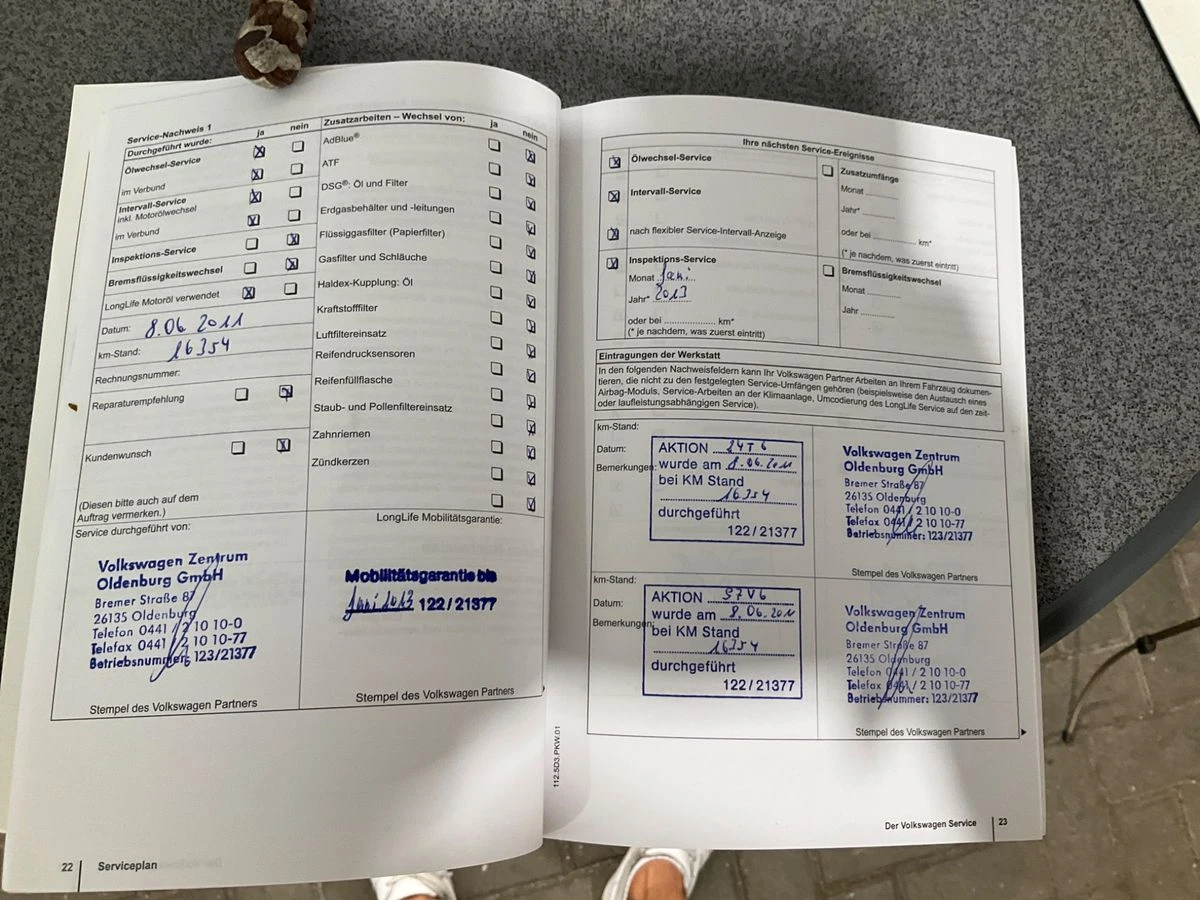 Service-Nachweis 1
Durchgeführt wurde:
ja
nein
Ölwechsel-Service
im Verbund
Intervall-Service
inkl. Motorölwechsel
im Verbund
Inspektions-Service
Bremsflüssigkeitswechsel
LongLife Motoröl verwendet
Datum: 8.06 2011
km-Stand: 16354
Rechnungsnummer:
Reparaturempfehlung
Kundenwunsch
(Diesen bitte auch auf dem
Auftrag vermerken.)
Zusatzarbeiten – Wechsel von:
ja
nein
AdBlue®
ATF
DSG®: Öl und Filter
Erdgasbehälter und -leitungen
Flüssiggasfilter (Papierfilter)
Gasfilter und Schläuche
Haldex-Kupplung: Öl
Kraftstofffilter
Luftfiltereinsatz
Reifendrucksensoren
Reifenfüllflasche
Staub- und Pollenfiltereinsatz
Zahnriemen
Zündkerzen
Service durchgeführt von:
Volkswagen Zentrum
Oldenburg GmbH
Bremer Straße 87
26135 Oldenburg
Telefon 0441 / 2 10 10-0
Telefax 0441 / 2 10 10-77
Betriebsnummer: 123/21377
Stempel des Volkswagen Partners
LongLife Mobilitätsgarantie:
Mobilitätsgarantie bis
Juni 2013 122/21377
Stempel des Volkswagen Partners
22 Serviceplan
Ihre nächsten Service-Ereignisse
Ölwechsel-Service
Intervall-Service
nach flexibler Service-Intervall-Anzeige
Inspektions-Service
Monat Juni
Jahr* 2013
oder bei ................ km*
(* je nachdem, was zuerst eintritt)
Zusatzumfänge
Monat ..........
Jahr* ..........
oder bei ............. km*
(* je nachdem, was zuerst eintritt)
Bremsflüssigkeitswechsel
Monat ..........
Jahr ..........
Eintragungen der Werkstatt
In den folgenden Nachweisfeldern kann Ihr Volkswagen Partner Arbeiten an Ihrem Fahrzeug dokumen-
tieren, die nicht zu den festgelegten Service-Umfängen gehören (beispielsweise den Austausch eines
Airbag-Moduls, Service-Arbeiten an der Klimaanlage, Umcodierung des LongLife Service auf den zeit-
oder laufleistungsabhängigen Service).
km-Stand:
Datum:
Bemerkungen:
AKTION 24T6
wurde am 8.06.2011
bei KM Stand
16354
durchgeführt
122/21377
Volkswagen Zentrum
Oldenburg GmbH
Bremer Straße 87
26135 Oldenburg
Telefon 0441 / 2 10 10-0
Telefax 0441 / 2 10 10-77
Betriebsnummer: 123/21377
Stempel des Volkswagen Partners
km-Stand:
Datum:
Bemerkungen:
AKTION 97V6
wurde am 8.06.2011
bei KM Stand
16354
durchgeführt
122/21377
Volkswagen Zentrum
Oldenburg GmbH
Bremer Straße 87
26135 Oldenburg
Telefon 0441 / 2 10 10-0
Telefax 0441 / 2 10 10-77
Betriebsnummer: 123/21377
Stempel des Volkswagen Partners
112.5D3.PKW.01
Der Volkswagen Service 23